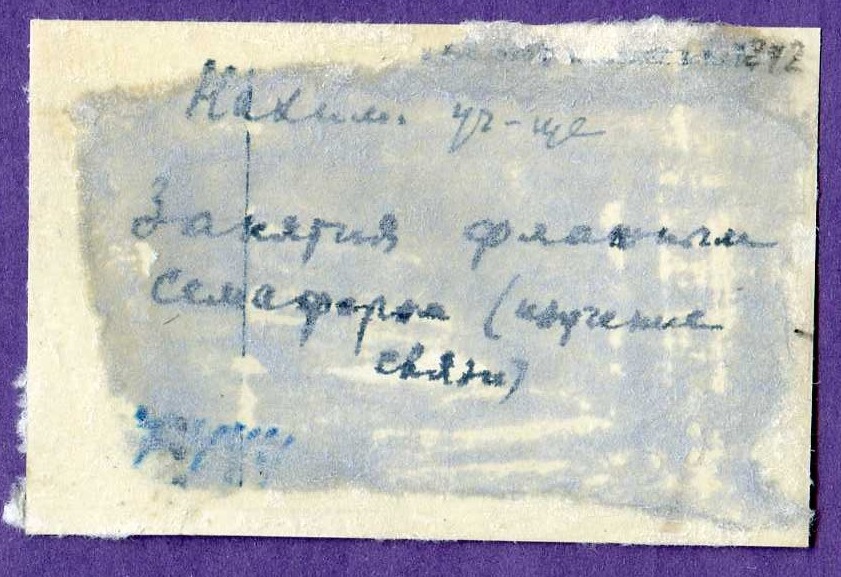 1272
Нахим. уч-ще
Занятия флажным
семафором (изучение
связи)